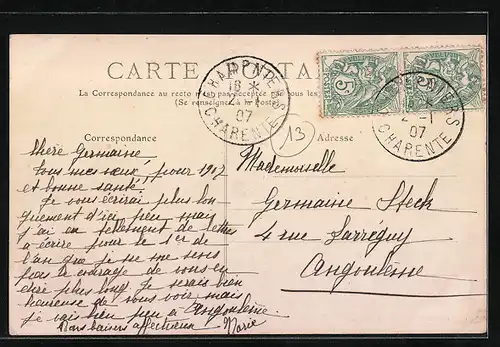 CARTE POSTALE
La Correspondance au recto n'est pas acceptée par tous les
(Se renseigner à la Poste)
CHAMPNIERS
18 *
2 -1
07
CHARENTE
5
CHAMPNIERS
2 -1
07
CHARENTE
13
Correspondance
Adresse
chère Germaine
tous mes vœux, pour 1907
et bonne santé.
Je vous écrirai plus lon-
guement d'ici peu, mais
j'ai en tellement de lettres
à écrire pour le 1er de
l'an que je ne me sens
pas le courage de vous en
dire plus long. Je serais bien
heureuse de vous voir mais
je vais bien peu à Angoulême.
Bons baisers affectueux
Marie
Mademoiselle
Germaine Steck
4 rue Larréguy
Angoulême